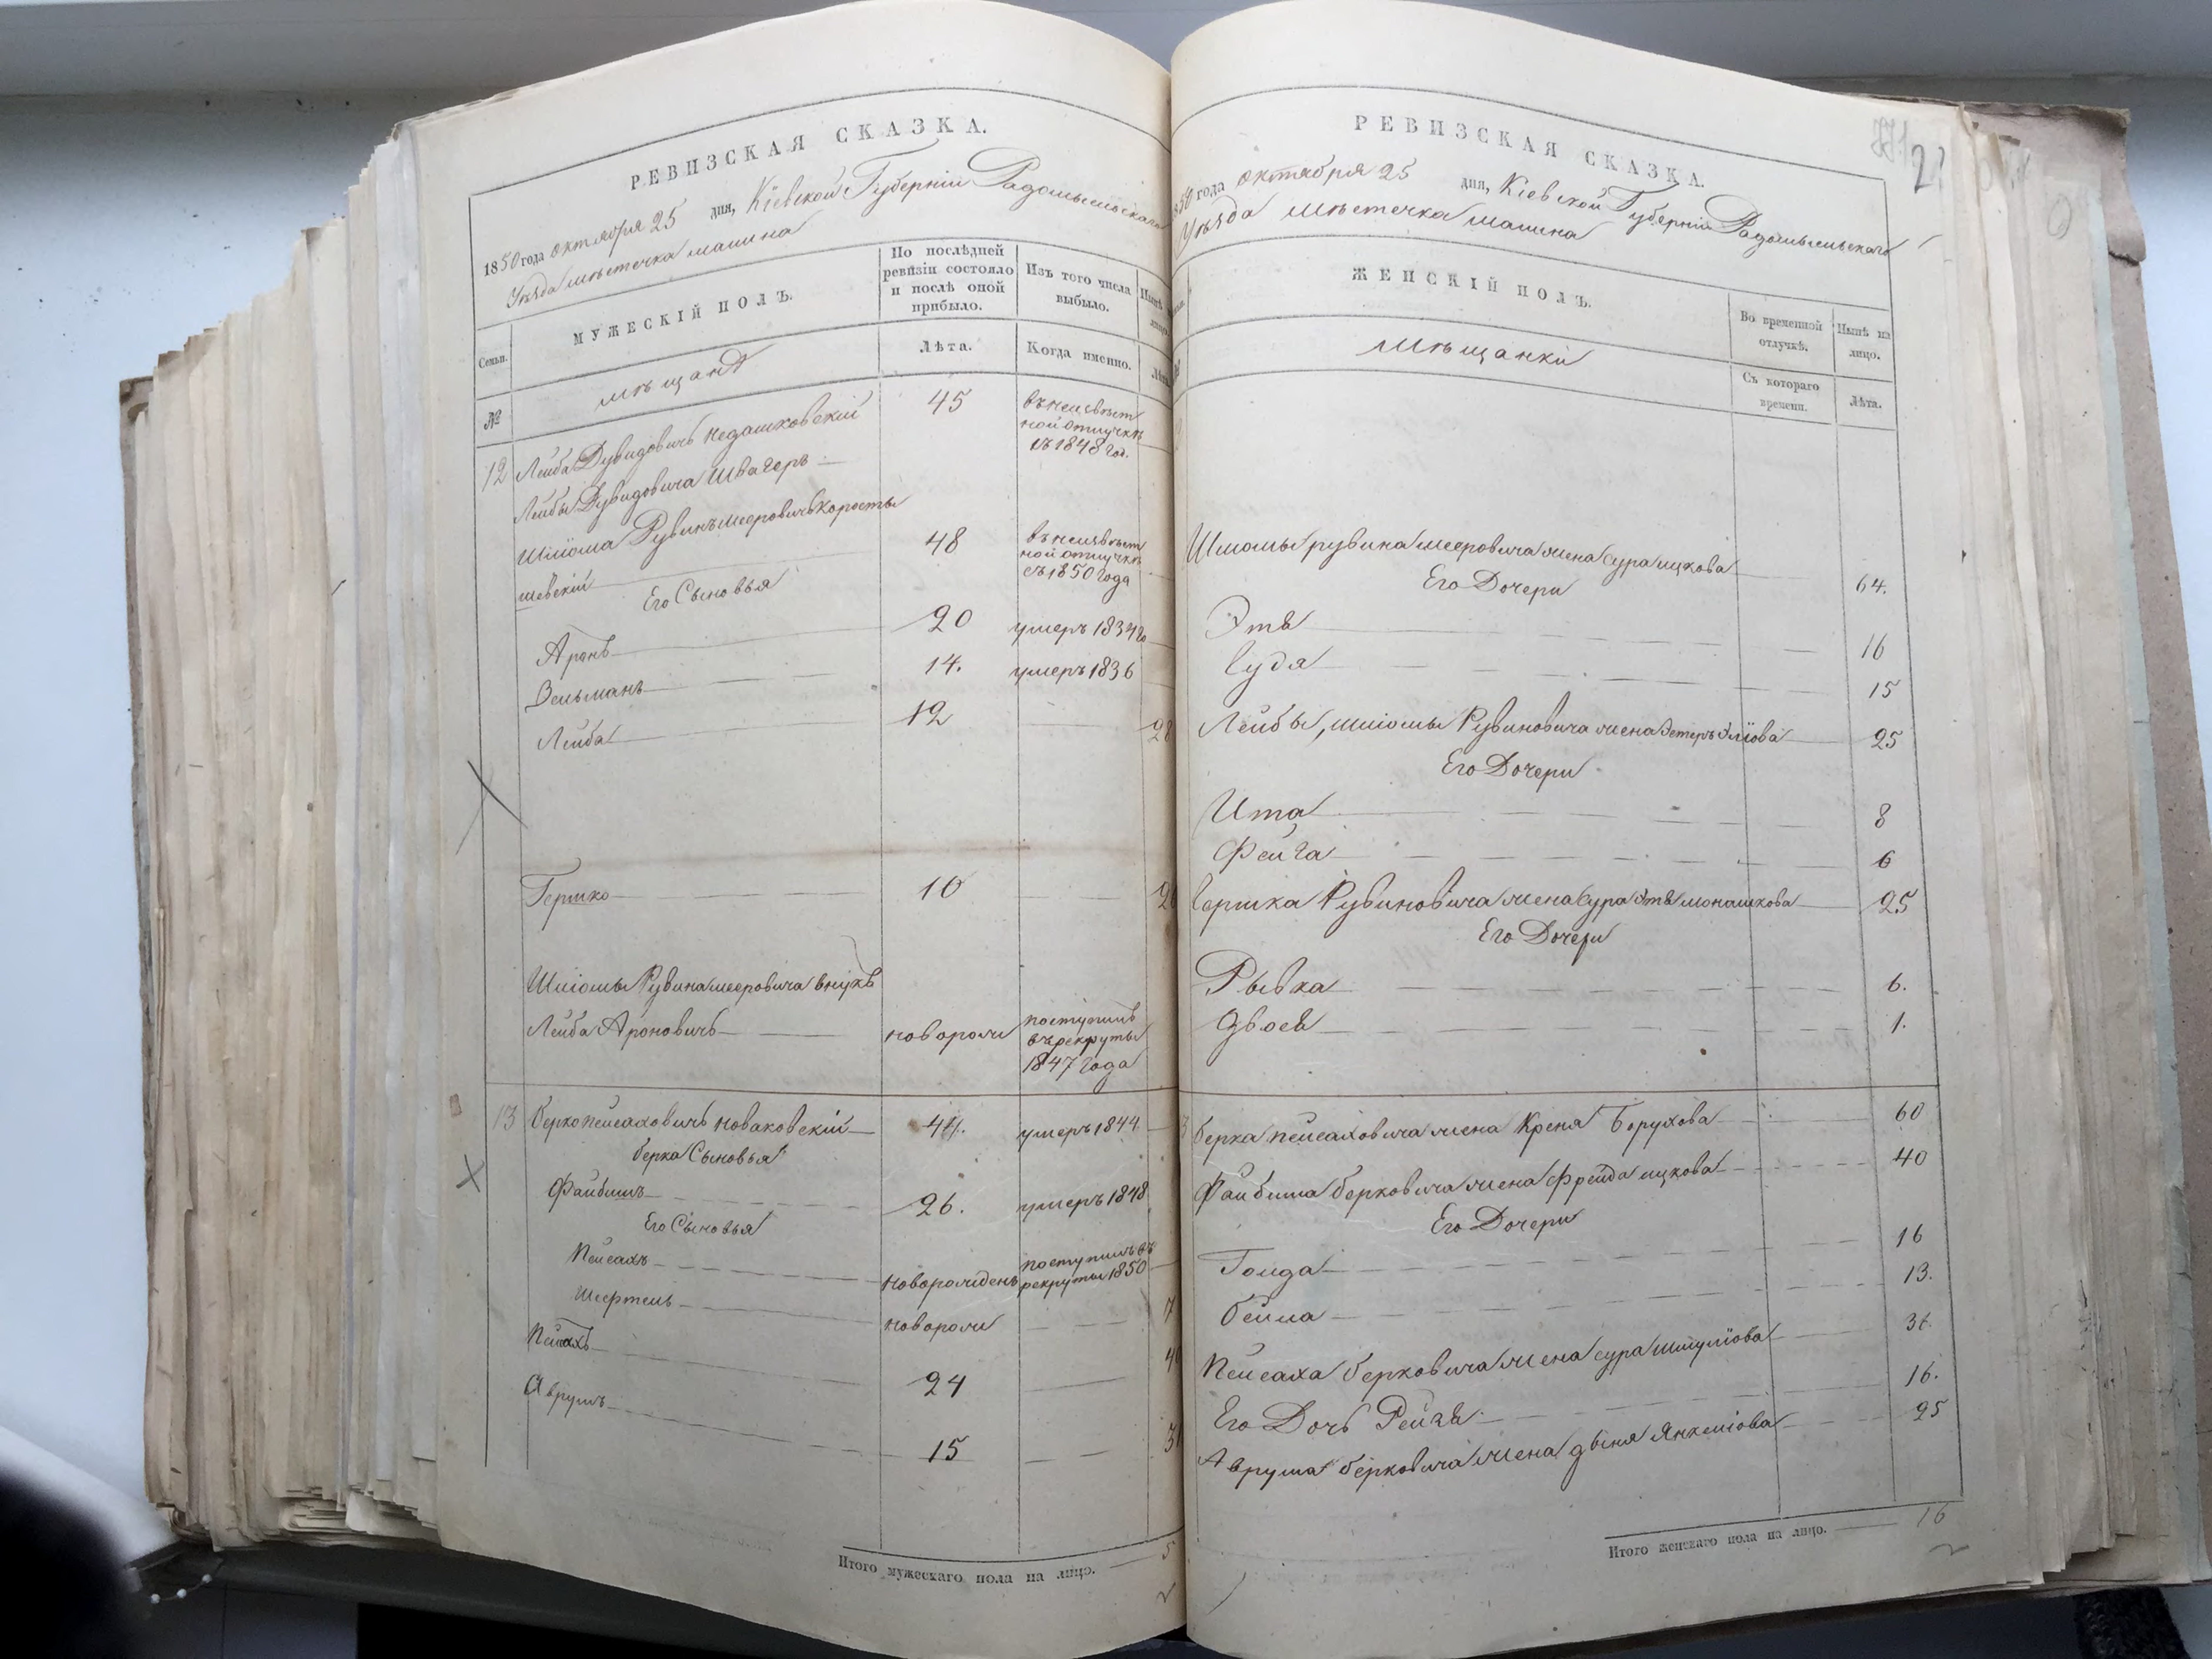 РЕВИЗСКАЯ СКАЗКА.
1850 года октября 25 дня, Кіевской Губерніи Радомысльскаго
Уѣзда мѣстечка Малина
Семьи.
МУЖЕСКІЙ ПОЛЪ.
По послѣдней ревизіи состояло и послѣ оной прибыло.
Изъ того числа выбыло.
№
мѣщанѣ
Лѣта.
Когда именно.
12 Лейба Дувидовичъ Недашковскій 45 въ неизвѣст
ной отлучкѣ
съ 1848 год.
Лейбы Дувидовича Швагеръ
Шліома Рувинъ Мееровичъ Коросты
шевскій 48 въ неизвѣст
ной отлучкѣ
съ 1850 года
Его Сыновья
Аронъ 20 умеръ 1834 го
Зельманъ 14. умеръ 1836
Лейба 12 28
Гершко 10 26
Шліомы Рувина Мееровича внукъ
Лейба Ароновичъ новорож поступилъ
въ рекруты
1847 года
13 Берко Пейсаховичъ Новаковскій 44. умеръ 1844
Берка Сыновья
Файбишъ 26. умеръ 1848
Его Сыновья
Пейсахъ новорожденъ поступилъ въ
рекруты 1850
новорож
Пейсахъ 24
Аврумъ 15
Итого мужескаго пола на лицо. 5
РЕВИЗСКАЯ СКАЗКА.
1850 года октября 25 дня, Кіевской Губерніи Радомысльскаго
Уѣзда мѣстечка Малина
ЖЕНСКІЙ ПОЛЪ.
Во временной отлучкѣ.
Нынѣ на лицо.
мѣщанки
Съ котораго времени.
Лѣта.
Шліомы Рувина Мееровича жена Сура Ицкова 64.
Его Дочери
Этя 16
Гудя 15
Лейбы, Шліомы Рувиновича жена Эстеръ Эліова 25
Его Дочери
Ита 8
Фейга 6
Гершка Рувиновича жена Сура Этя Монашкова 25
Его Дочери
Рывка 6.
Двося 1.
Берка Пейсаховича жена Креня Борухова 60
Файбиша Берковича жена Фрейда Ицкова 40
Его Дочери
Голда 16
Бейла 13.
Пейсаха Берковича жена Сура Шмулiова
Его Дочь Рейзя 16.
Аврума Берковича жена Двеня Янкеліова 25
Итого женскаго пола на лицо. 16